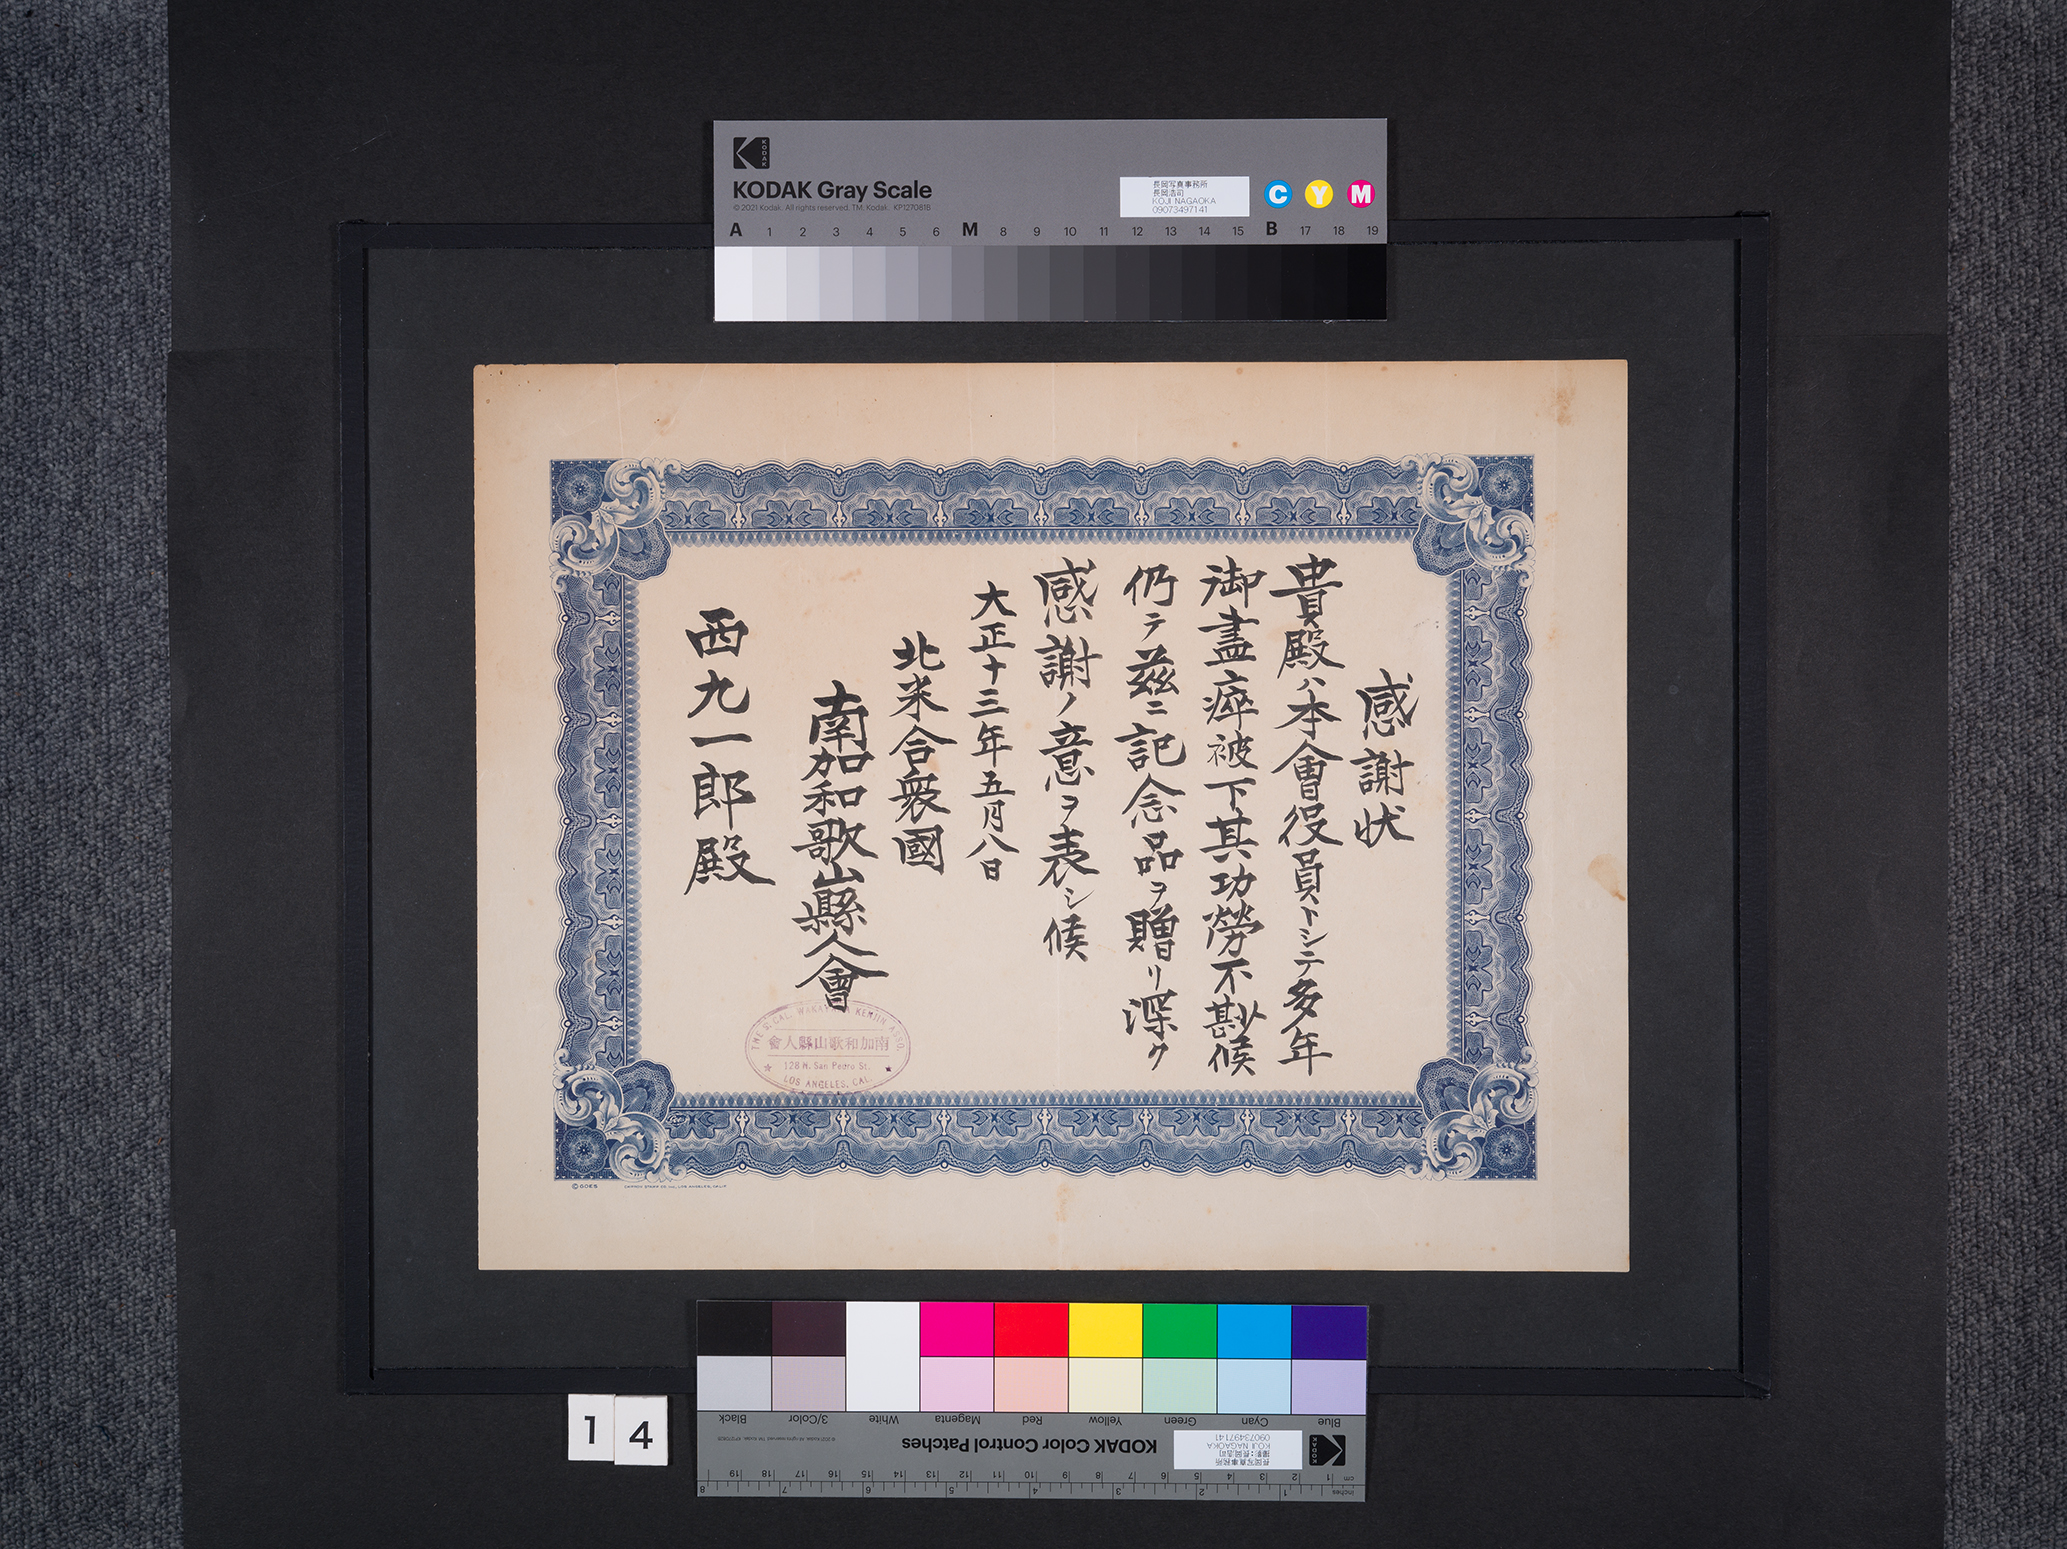 KODAK
KODAK Gray Scale
© 2021 Kodak. All rights reserved. TM. Kodak. KP127081B
長岡写真事務所
長岡浩司
KOJI NAGAOKA
09073497141
C Y M
A 1 2 3 4 5 6 M 8 9 10 11 12 13 14 15 B 17 18 19
感謝状
貴殿ハ本會役員トシテ多年
御盡瘁被下其功勞不尠候
仍テ茲ニ記念品ヲ贈リ深ク
感謝ノ意ヲ表シ候
大正十三年五月八日
北米合衆國
南加和歌山縣人會
西九一郎殿
THE S. CAL. WAKAYAMA KENJIN ASSO.
南加和歌山縣人會
128 N. San Pedro St.
LOS ANGELES, CAL.
© GOES
1 4
Black 3/Color White Magenta Red Yellow Green Cyan Blue
KODAK Color Control Patches
長岡写真事務所
撮影:長岡浩司
KOJI NAGAOKA
09073497141
KODAK
cm 1 2 3 4 5 6 7 8 9 10 11 12 13 14 15 16 17 18 19
inches 1 2 3 4 5 6 7 8